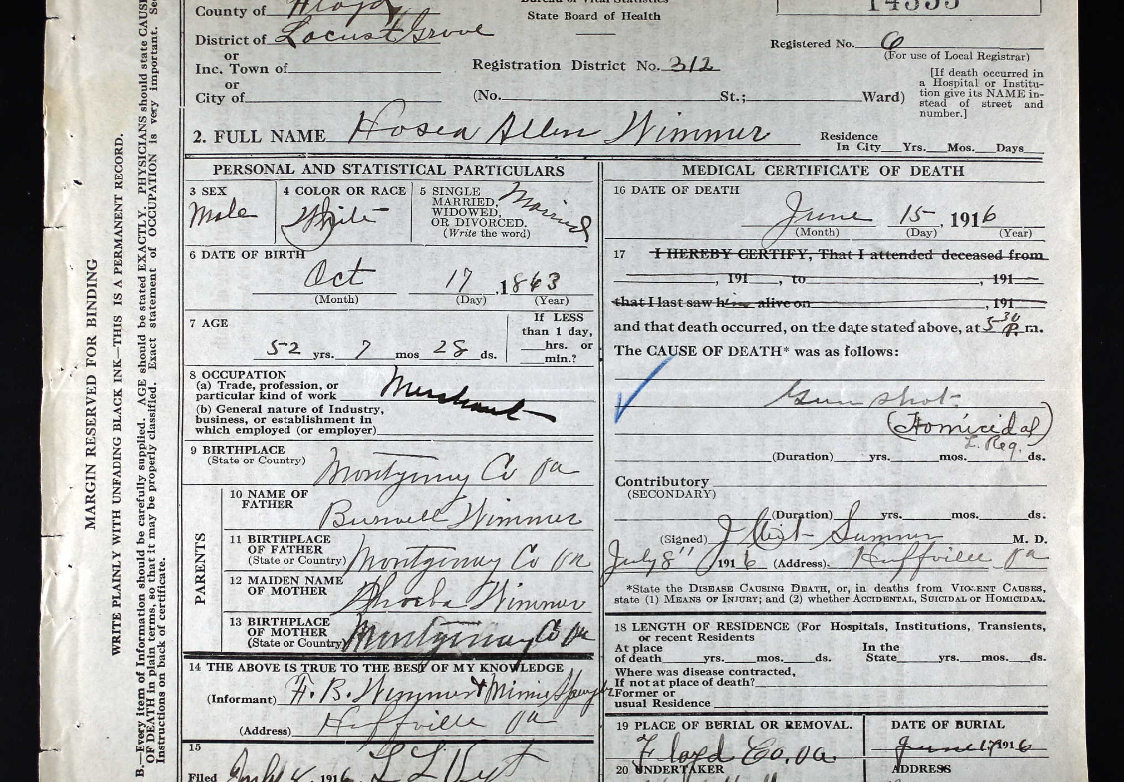 County of Floyd
Bureau of Vital Statistics
State Board of Health
14555
District of Locust Grove
Registered No. 6
(For use of Local Registrar)
or
Inc. Town of
Registration District No. 312
or
City of
(No. St.; Ward)
[If death occurred in
a Hospital or Institu-
tion give its NAME in-
stead of street and
number.]
2. FULL NAME Hosea Allen Wimmer
Residence
In City Yrs. Mos. Days
PERSONAL AND STATISTICAL PARTICULARS
3 SEX
Male
4 COLOR OR RACE
White
5 SINGLE
MARRIED,
WIDOWED,
OR DIVORCED.
(Write the word)
Married
6 DATE OF BIRTH
Oct 17, 1863
(Month) (Day) (Year)
7 AGE
52 yrs. 7 mos 28 ds.
If LESS
than 1 day,
hrs. or
min.?
8 OCCUPATION
(a) Trade, profession, or
particular kind of work Merchant
(b) General nature of Industry,
business, or establishment in
which employed (or employer)
9 BIRTHPLACE
(State or Country) Montgomery Co Va
PARENTS
10 NAME OF
FATHER
Burwell Wimmer
11 BIRTHPLACE
OF FATHER
(State or Country) Montgomery Co Va
12 MAIDEN NAME
OF MOTHER
Phoeba Wimmer
13 BIRTHPLACE
OF MOTHER
(State or Country) Montgomery Co Va
14 THE ABOVE IS TRUE TO THE BEST OF MY KNOWLEDGE
(Informant) F. B. Wimmer & Minnie
(Address) Huffville Va
15
Filed July 8, 1916
MEDICAL CERTIFICATE OF DEATH
16 DATE OF DEATH
June 15, 1916
(Month) (Day) (Year)
17 I HEREBY CERTIFY, That I attended deceased from
, 191 , to , 191
that I last saw h alive on , 191
and that death occurred, on the date stated above, at 5 30 P. m.
The CAUSE OF DEATH* was as follows:
Gun shot
(Homicidal)
L. Reg.
(Duration) yrs. mos. ds.
Contributory
(SECONDARY)
(Duration) yrs. mos. ds.
(Signed) J Sumner M. D.
July 8" 1916 (Address). Huffville Va
*State the DISEASE CAUSING DEATH, or, in deaths from VIOLENT CAUSES,
state (1) MEANS OF INJURY; and (2) whether ACCIDENTAL, SUICIDAL or HOMICIDAL.
18 LENGTH OF RESIDENCE (For Hospitals, Institutions, Transients,
or recent Residents
At place
of death yrs. mos. ds.
In the
State yrs. mos. ds.
Where was disease contracted,
If not at place of death?
Former or
usual Residence
19 PLACE OF BURIAL OR REMOVAL.
Floyd Co. Va
DATE OF BURIAL
June 17 1916
20 UNDERTAKER
ADDRESS
MARGIN RESERVED FOR BINDING
WRITE PLAINLY WITH UNFADING BLACK INK—THIS IS A PERMANENT RECORD.
B.—Every item of Information should be carefully supplied. AGE should be stated EXACTLY. PHYSICIANS should state CAUSE
OF DEATH in plain terms, so that it may be properly classified. Exact statement of OCCUPATION is very important. See
instructions on back of certificate.